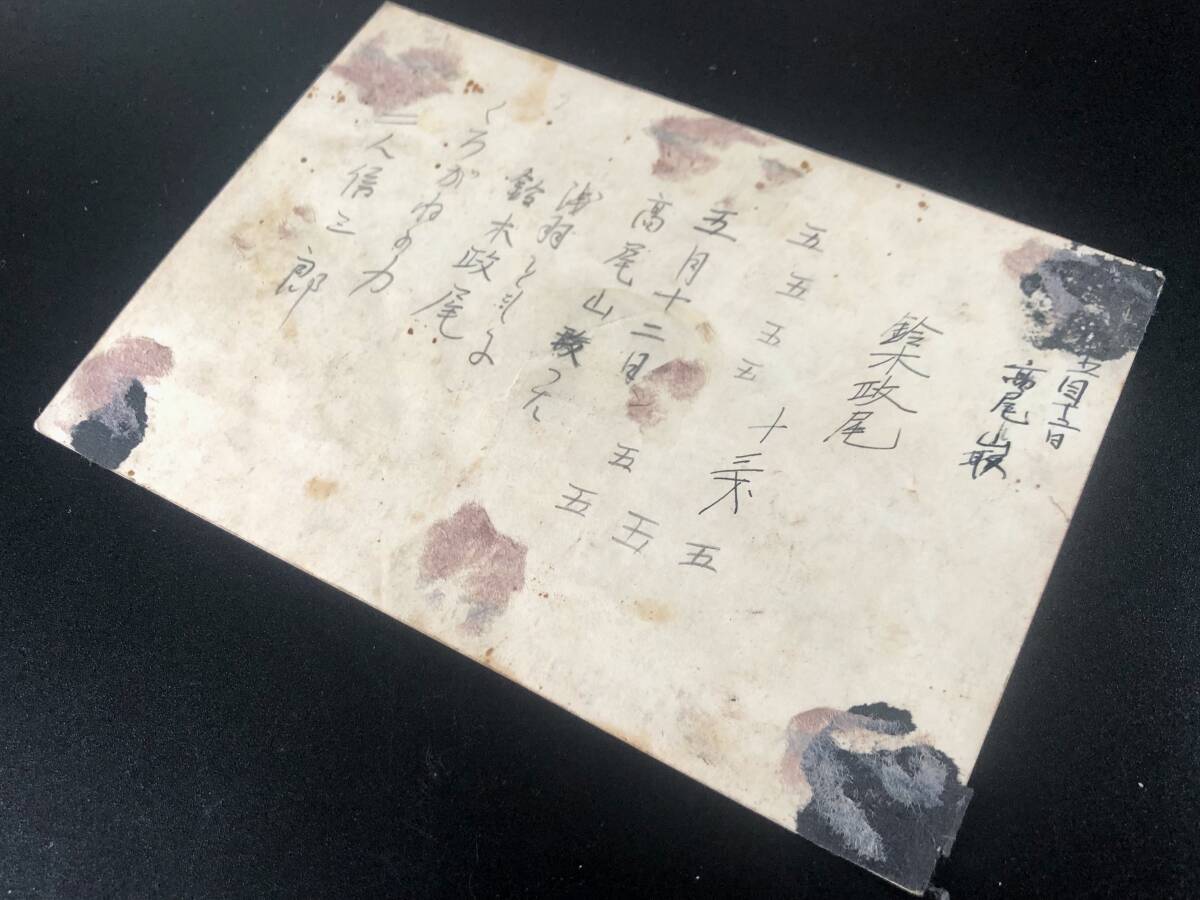 五月十二日
高尾山最
鈴木政尾
五五五五十三才五
五月十二日
五
五
五
高尾山
浅羽ともよ
鈴木政尾
くろがねの力
二人信三郎